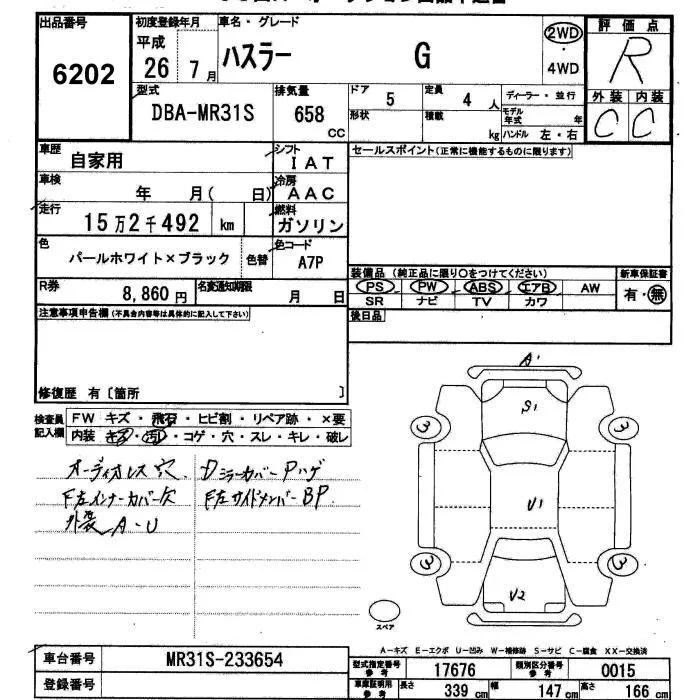 出品番号
6202
初度登録年月
平成
26 7月
車名・グレード
ハスラー G
2WD
4WD
評価点
R
外装 内装
C C
型式
DBA-MR31S
排気量
658
CC
ドア 5
定員 4 人
ディーラー・並行
形状
積載 kg
モデル年式 年
ハンドル 左・右
車歴
自家用
シフト
IAT
セールスポイント(正常に機能するものに限ります)
車検
年 月( 日)
冷房
AAC
走行
15万2千492 km
燃料
ガソリン
色
パールホワイト×ブラック
色替
色コード
A7P
装備品(純正品に限り○をつけてください)
新車保証書
PS PW ABS エアB AW
有・無
SR ナビ TV カワ
R券
8,860円
名変通知期限
月 日
後日品
注意事項申告欄(不具合内容等は具体的に記入して下さい)
修復歴 有〔箇所 〕
検査員記入欄
FW キズ・飛石・ヒビ割・リペア跡・×要
内装 キズ・汚れ・コゲ・穴・スレ・キレ・破レ
オーディオレス穴 DミラーカバーPハゲ
F左インナーカバー欠 F左サイドメンバーBP
外装A-U
A1
S1
3 3
U1
3 3
U2
スペア
A-キズ E-エクボ U-凹み W-補修跡 S-サビ C-腐食 XX-交換済
車台番号
MR31S-233654
登録番号
型式指定番号参考
17676
類別区分番号参考
0015
車庫証明用参考
長さ 339 cm
幅 147 cm
高さ 166 cm